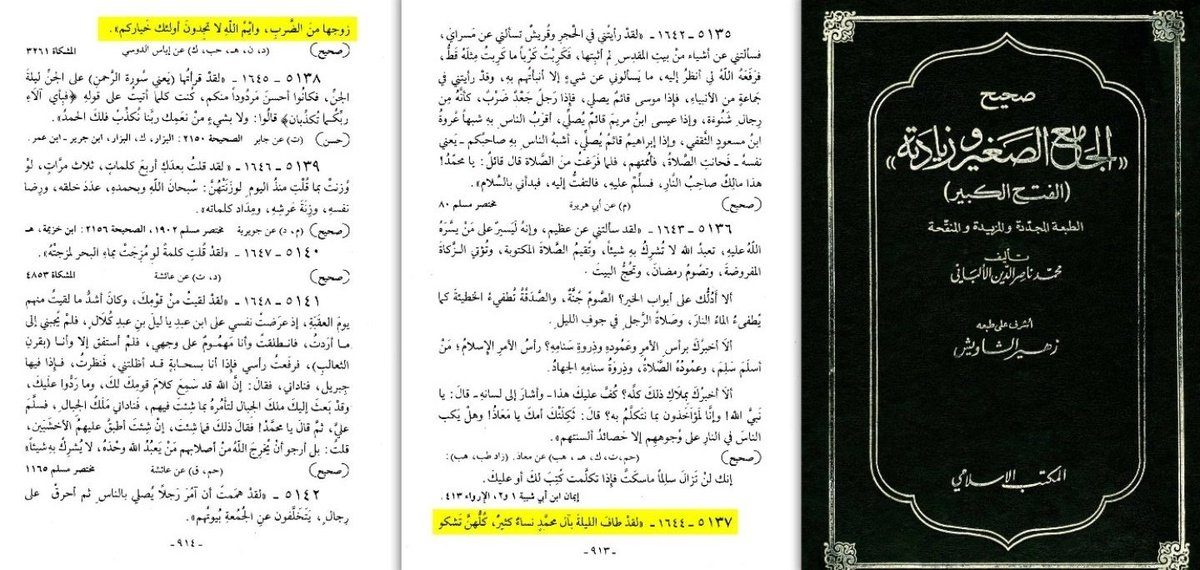 صحيح
«الجامع الصغير وزيادته»
(الفتح الكبير)
الطبعة المجددة والمزيدة والمنقحة
تأليف
محمد ناصر الدين الألباني
أشرف على طبعه
زهير الشاويش
المكتب الإسلامي
٥١٣٥ - ١٦٤٢ - «لقدْ رأيتني في الْحِجرِ وقُريشٌ تسألُني عن مَسرايَ،
فسألتني عن أشياءَ منْ بيتِ المقدِسِ لم أثبتها، فكُرِبْتُ كَرْباً ما كُرِبتُ مثلَهُ قطُّ،
فرَفَعَهُ اللهُ لي أنظُرُ إليه، ما يَسألوني عن شيءٍ إلا أنبأتُهم بهِ، وقدْ رأيتني في
جَماعةٍ من الأنبياءِ، فإذا موسى قائمٌ يصلي، فإذا رَجلٌ جَعْدٌ ضرْبٌ، كأنَّهُ مِن
رِجالِ شَنُوءَة، وإذا عيسى ابنُ مريمَ قائمٌ يُصلّي، أقرَبُ الناسِ بهِ شبهاً عُروةُ
ابنُ مسعودٍ الثَّقفي، وإذا إبراهيمُ قائمٌ يُصلّي، أشبَهُ الناسِ بهِ صاحبُكم - يَعني
نفسهُ - فحانتِ الصَّلاةُ، فأممْتُهم، فلما فَرَغتُ منَ الصَّلاة قال قائلٌ: يا محمدُ!
هذا مالِكٌ صاحِبُ النَّارِ، فسلِّمْ عليهِ، فالتفتُّ إليه، فبدأني بالسَّلام».
(صحيح) (م) عن أبي هريرة. مختصر مسلم ٨٠
٥١٣٦ - ١٦٤٣ - «لقد سألتني عن عظيمٍ، وإنهُ ليَسيرٌ على مَنْ يسَّرَهُ
اللهُ عليهِ، تعبدُ اللهَ لا تُشركُ بهِ شيئاً، وتُقيمُ الصَّلاةَ المكتوبة، وتُؤتي الزَّكاةَ
المفروضةَ، وتصُومُ رمضانَ، وتحُجُّ البيتَ.
ألا أدُلُّك على أبوابِ الخيرِ؟ الصَّومُ جُنَّةٌ، والصَّدقةُ تُطفىءُ الخطيئةَ كما
يُطفىءُ الماءُ النارَ، وصَلاةُ الرَّجلِ في جوفِ الليل.
ألا أخبرُكَ برأسِ الأمرِ وعَمُودِهِ وذِروةِ سَنامِهِ؟ رأسُ الأمرِ الإسلامُ؛ مَنْ
أسلَمَ سَلِمَ، وعَمُودُهُ الصَّلاةُ، وذِروةُ سنامِهِ الجهادُ.
ألا أخبرُكَ بمِلاكِ ذلكَ كلِّه؟ كُفَّ عليكَ هذا - وأشارَ إلى لسانهِ - قالَ: يا
نبيَّ اللهِ! وإنَّا لمُؤاخَذون بما نتكلَّمُ به؟ قالَ: ثَكِلَتْكَ أمكَ يا مُعاذُ! وهلْ يَكب
الناسَ في النارِ على وُجوهِهم إلا حصائدُ ألسنتِهم».
(صحيح) (حم، ت، ك، هـ، هب) عن معاذ. (زاد طب، هب):
إنكَ لنْ تزالَ سالماً ماسكتَّ فإذا تكلَّمتَ كُتِبَ لكَ أو عليكَ.
إيمان ابن أبي شيبة ١ و٢، الإرواء ٤١٣.
٥١٣٧ - ١٦٤٤ - «لقدْ طافَ الليلةَ بآلِ محمَّدٍ نساءٌ كثيرٌ، كُلُّهنَّ تَشكو
- ٩١٣ -
زوجها منَ الضَّربِ، وأيمُ اللهِ لا تجدونَ أولئك خَيارَكم».
(صحيح) (د، ن، هـ، حب، ك) عن إياس الدوسي. المشكاة ٣٢٦١
٥١٣٨ - ١٦٤٥ - «لقدْ قرأتُها (يَعني سُورةَ الرَّحمنِ) على الجنِّ ليلةَ
الجنِّ، فكانُوا أحسنَ مَردُوداً منكم، كُنتُ كلما أتيتُ على قولهِ ﴿فبأي آلاءِ
ربِّكُما تكذِّبان﴾ قالُوا: ولا بشيءٍ منْ نعمِك ربَّنا نُكذِّبُ فلكَ الحمدُ».
(حسن) (ت) عن جابر. الصحيحة ٢١٥٠: البزار، ك، البزار، ابن جرير - ابن عمر.
٥١٣٩ - ١٦٤٦ - «لقد قلتُ بعدَكِ أربعَ كلماتٍ، ثلاثَ مرَّاتٍ، لوْ
وُزِنتْ بما قُلتِ منذُ اليومِ لوزنَتْهُنَّ: سُبحانَ اللهِ وبحمدِهِ، عدَدَ خلقِه، ورِضا
نفسهِ، وزِنَةَ عَرشِهِ، ومِدَادَ كلماتِه».
(صحيح) (م، د) عن جويرية. مختصر مسلم ١٩٠٢، الصحيحة ٢١٥٦: ابن خزيمة، هـ
٥١٤٠ - ١٦٤٧ - «لقدْ قُلتِ كلمةً لو مُزِجَتْ بماءِ البحرِ لمزجتْهُ».
(صحيح) (د، ت) عن عائشة. المشكاة ٤٨٥٣
٥١٤١ - ١٦٤٨ - «لقدْ لقيتُ منْ قومِكِ، وكانَ أشدُّ ما لقيتُ منهم
يومَ العقَبَةِ، إذ عرَضتُ نفسي على ابنِ عبدِ يا ليلَ بنِ عبدِ كُلالٍ، فلمْ يُجبني إلى
ما أردْتُ، فانطلقتُ وأنا مَهمُومٌ على وجهي، فلمْ أستفق إلا وأنا (بقرنِ
الثعالبِ)، فرفَعتُ رأسي فإذا أنا بسَحابةٍ قد أظلَّتني، فنظرتُ، فإذا فيها
جِبريلُ، فناداني، فقالَ: إنَّ اللهَ قد سَمِعَ كلامَ قومِكَ لكَ، وما ردُّوا علَيكَ،
وقدْ بَعثَ إليكَ ملَكَ الجبالِ لتأمُرَهُ بما شِئتَ فيهم، فناداني مَلَكُ الجبالِ، فسلَّم
عليَّ، ثمَّ قالَ يا محمَّدُ! فقالَ ذلكَ فما شِئتَ، إنْ شِئتَ أطبِقُ عليهمُ الأخشَبَينِ،
قلتُ: بل أرجو أنْ يُخرِجَ اللهُ منْ أصلابِهم مَنْ يَعبُدُ اللهَ وحْدَهُ، لا يُشرِكُ بهِ شيئاً»
(صحيح) (حم، ق) عن عائشة. مختصر مسلم ١١٦٥
٥١٤٢ - «لقدْ هممتُ أن آمُرَ رَجلاً يُصلي بالناسِ. ثم أحرقُ على
رجالٍ، يَتخَلَّفون عنِ الجُمُعةِ بيُوتَهم».
- ٩١٤ -